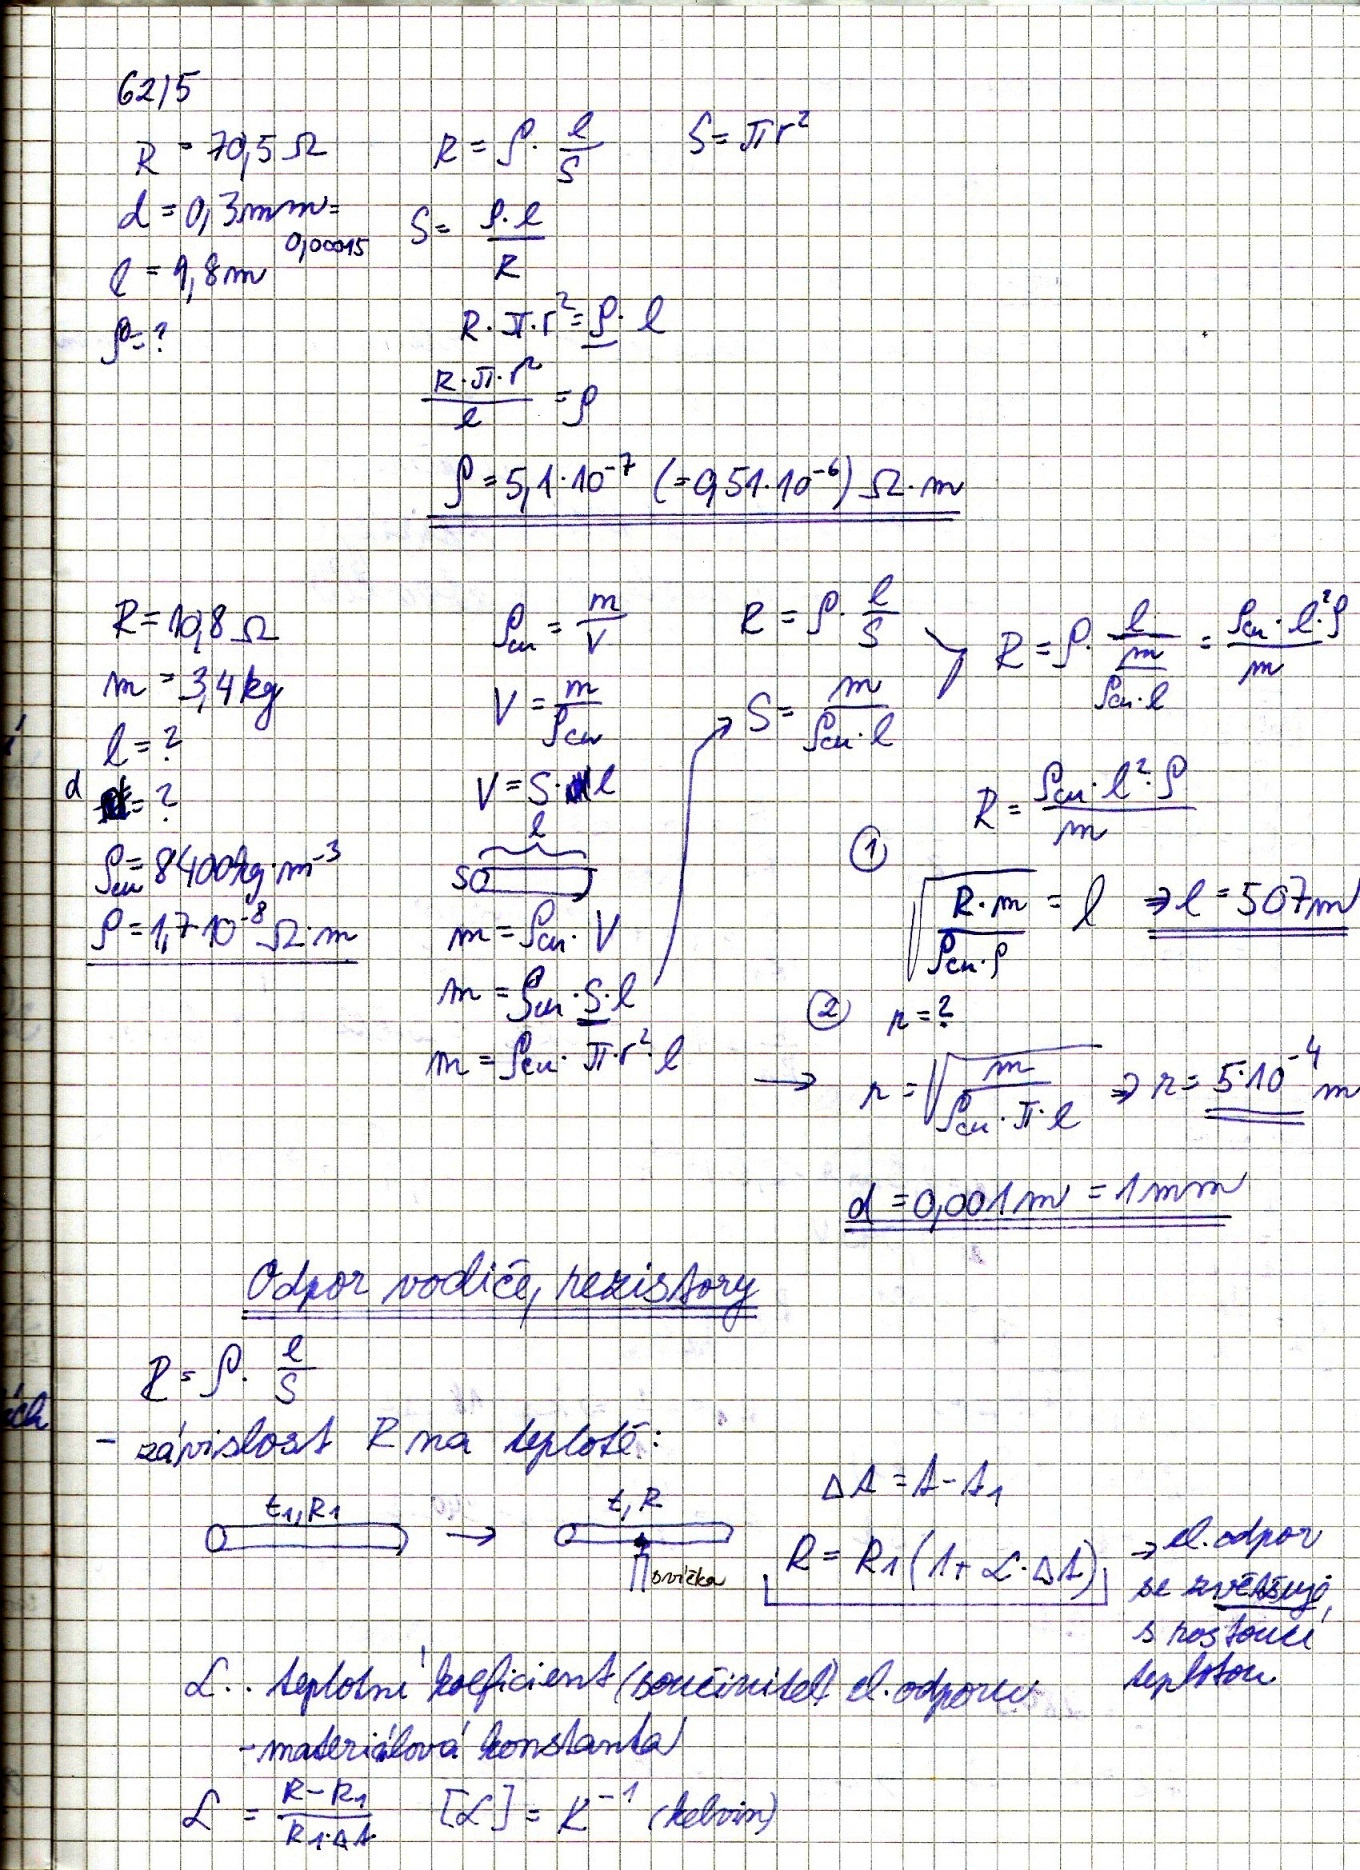 62/5
R = 70,5 Ω
d = 0,3 mm =
0,00015
l = 9,8 m
ρ = ?
R = ρ · l/S
S = πr²
S = ρ·l/R
R·π·r² = ρ·l
R·π·r²/l = ρ
ρ = 5,1·10⁻⁷ (=0,51·10⁻⁶) Ω·m
R = 10,8 Ω
m = 3,4 kg
l = ?
d = ?
ρcu = 8400 kg·m⁻³
ρ = 1,7·10⁻⁸ Ω·m
ρcu = m/V
V = m/ρcu
V = S·l
l
S
m = ρcu · V
m = ρcu · S · l
m = ρcu · π·r²·l
R = ρ · l/S
S = m/ρcu·l
R = ρ · l/(m/ρcu·l) = ρcu·l²·ρ/m
R = ρcu·l²·ρ/m
①
√(R·m/ρcu·ρ) = l ⇒ l = 507 m
② r = ?
→ r = √(m/ρcu·π·l) ⇒ r = 5·10⁻⁴ m
d = 0,001 m = 1 mm
Odpor vodiče, rezistory
R = ρ · l/S
- závislost R na teplotě:
t₁, R₁ → t, R
svíčka
Δt = t - t₁
R = R₁ (1 + α·Δt)
→ el. odpor
se zvětšuje,
s rostoucí
teplotou
α.. teplotní koeficient (součinitel) el. odporu
- materiálová konstanta
α = R - R₁/R₁·Δt [α] = K⁻¹ (kelvin)